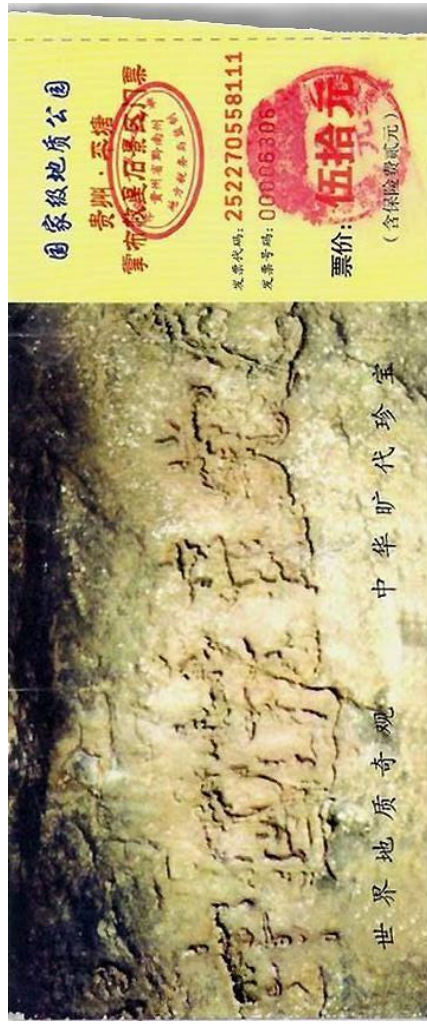 国家级地质公园
贵州·平塘
掌布救星石景区门票
贵州省黔南州
地方税务局监制
发票代码: 252270558111
发票号码: 00006306
票价: 伍拾元
(含保险费贰元)
中國共产党
世界地质奇观 中华旷代珍宝